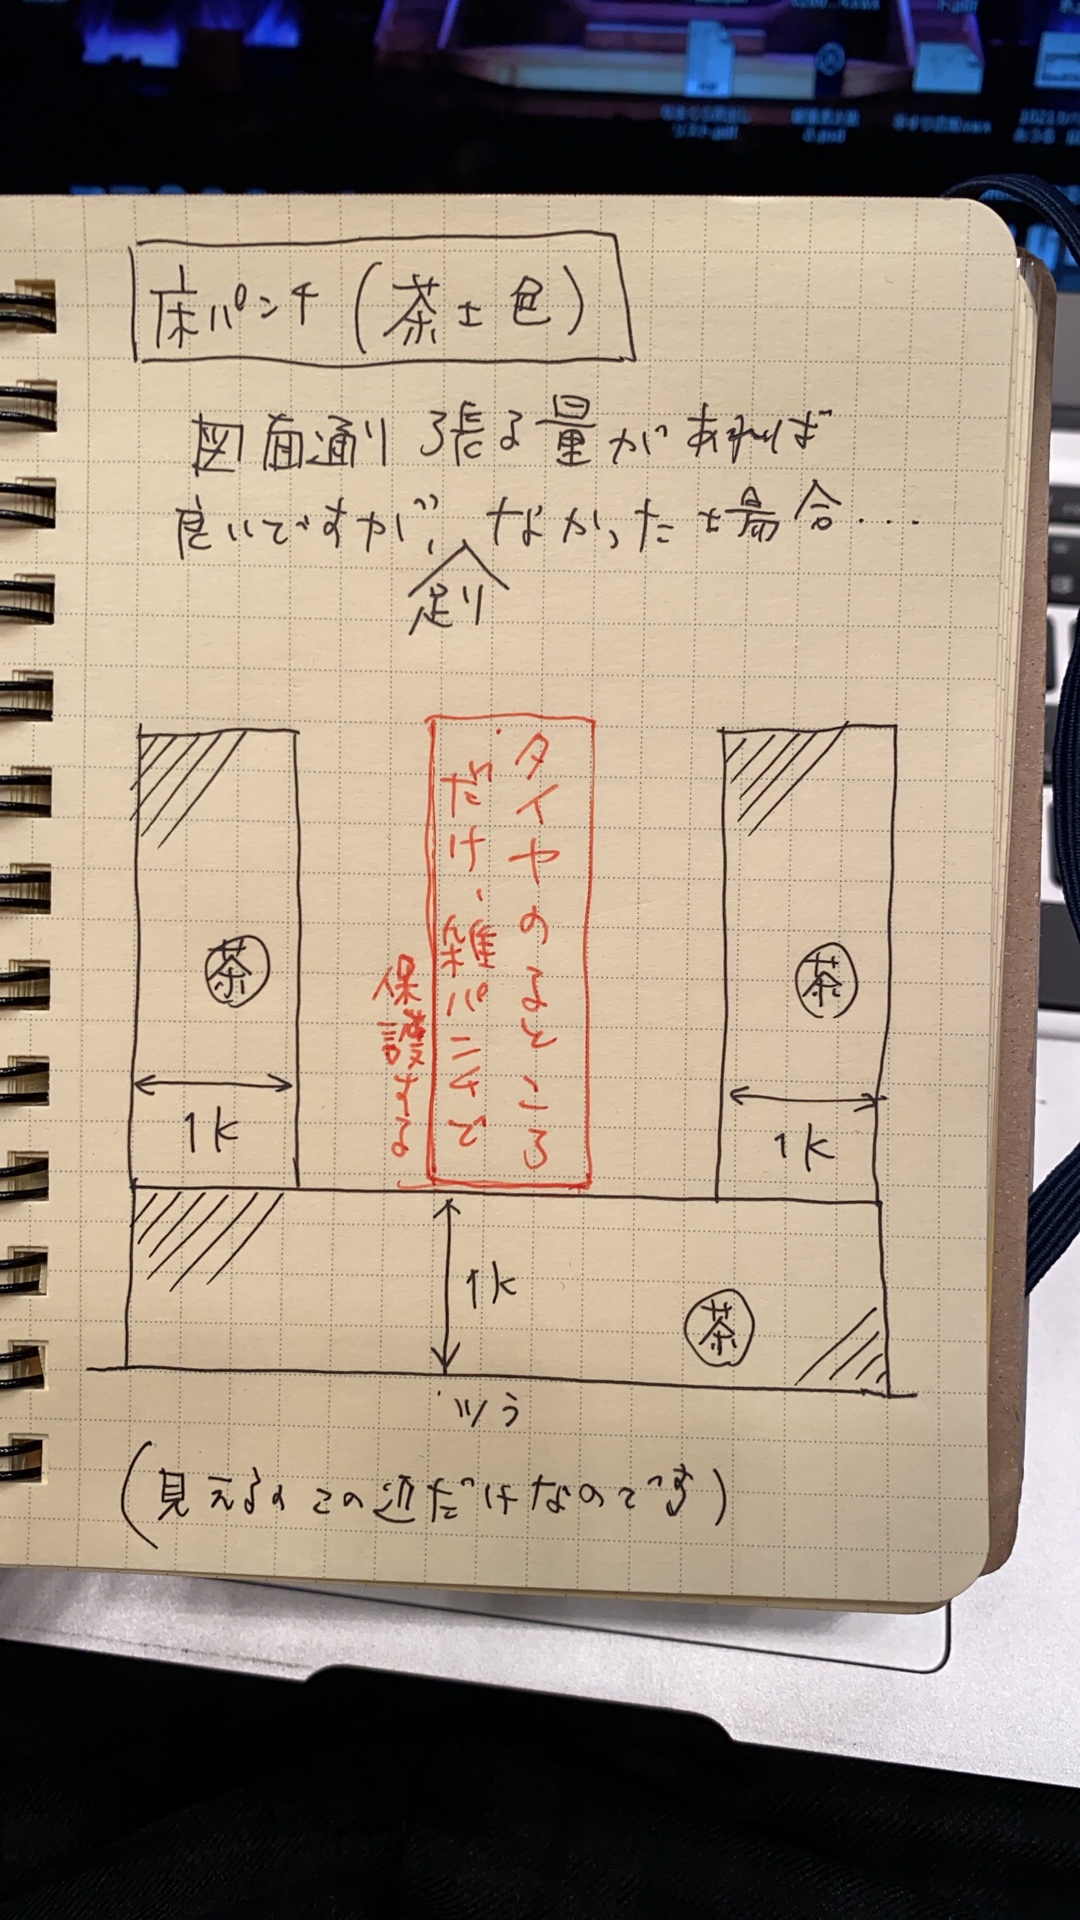 床パンチ(茶土色)
図面通り張る量があれば
良いですが、足りなかった場合....
タイヤのるところ
だけ、雑パンチで
保護する
茶
茶
1k
1k
1k
茶
ツラ
(見えるのこの辺だけなのです)